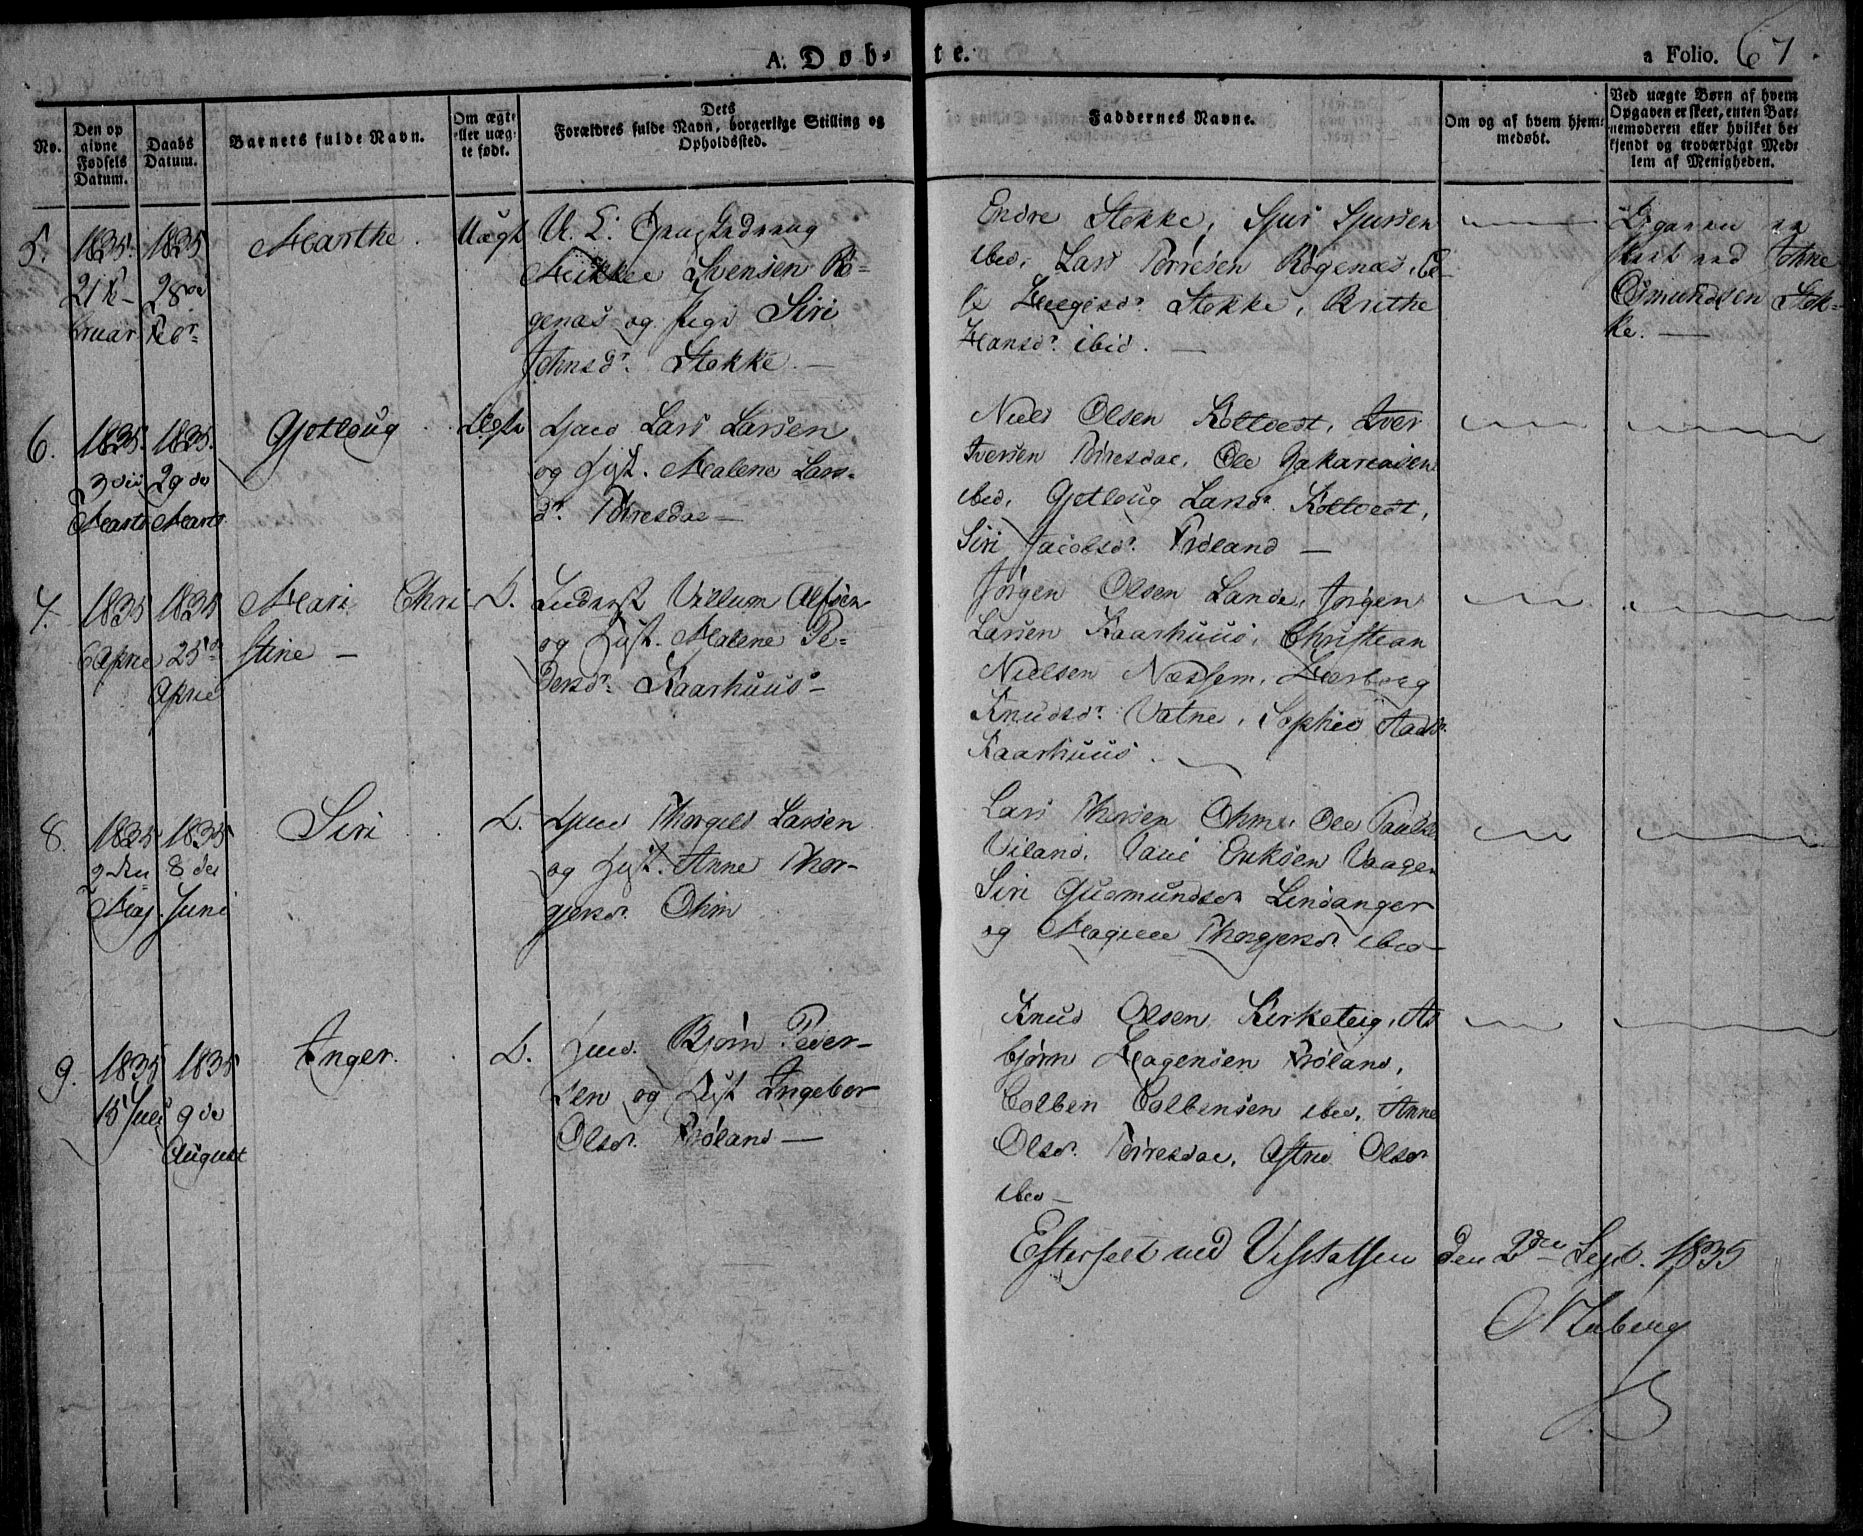 A. Døb-
te.
a Folio. 67
No.
Den op
givne
Fødsels
Datum.
Daabs
Datum.
Barnets fulde Navn.
Om ægte
eller uæg-
te født.
Dets
Forældres fulde Navn, borgerlige Stilling og
Opholdssted.
Faddernes Navne.
Om og af hvem hjem-
medøbt.
Ved uægte Børn af hvem
Opgaven er skeet, enten Bar-
nemoderen eller hvilket be-
kjendt og troværdigt Med-
lem af Menigheden.
5.
1835.
21 Fe-
bruar
1835
28de
Febr
Marthe.
Uægt
U. C.
Mikkel Svensen Rø-
genas og Pige Siri
Johnsdr. Stokke. —
Endre Stokke, Sjur Sjursen
ibid, Lars Tørresen Røgenas,
Stokke, Brithe
Hansdr. ibid. —
Opgaven
skeet ved Johne
Osmundsen Stok-
ke. —
6.
1835.
3die
Marts
1835.
29de
Marts
Gjotloug
Ægte
Gaard Lars Larsen
og Hust. Malene Lars-
dr. Tørresdal —
Niels Olsen Koltvedt, Iver
Iversen Tørresdal, Ole Zakariasen
ibid, Gjotloug Larsdr. Koltvedt,
Siri Jacobsdr. Frøland —
7.
1835
6 April
1835
25de
April
Mari Chri-
stine —
D.
Inderst Villum Alfsen
og Hust. Malene Pe-
dersdr. Kaarhuus —
Jørgen Olsen Lande, Jørgen
Larsen Kaarhuus, Christian
Nielsen Næssem, Herborg
Knudsdr. Vatne, Sophie Aadsdr.
Kaarhuus.
8.
1835
9den
Maj.
1835
8de
Juni
Siri
D.
Gaard Thorgils Larsen
og Hust. Anne Thor-
gjersdr. Ohm
Lars Thorsen Ohm, Ole Paulse
Viland, Paul Eriksen Vaagen
Siri Gudmundsdr Lindanger
og Magille Thorgjersdr. ibid —
9.
1835
15 Juli
1835
9de
August
Anger.
D.
Bjørn Peder-
sen og Hust Ingebor
Olsdr. Frøland —
Knud Olsen Kirketeig, As
bjørn Hagensen Frøland,
Colben Colbensen ibid, Anne
Olsdr. Tørresdal, Astrid Olsdr
ibid —
Efterseet ved Visitatsen den 2den Sept. 1835